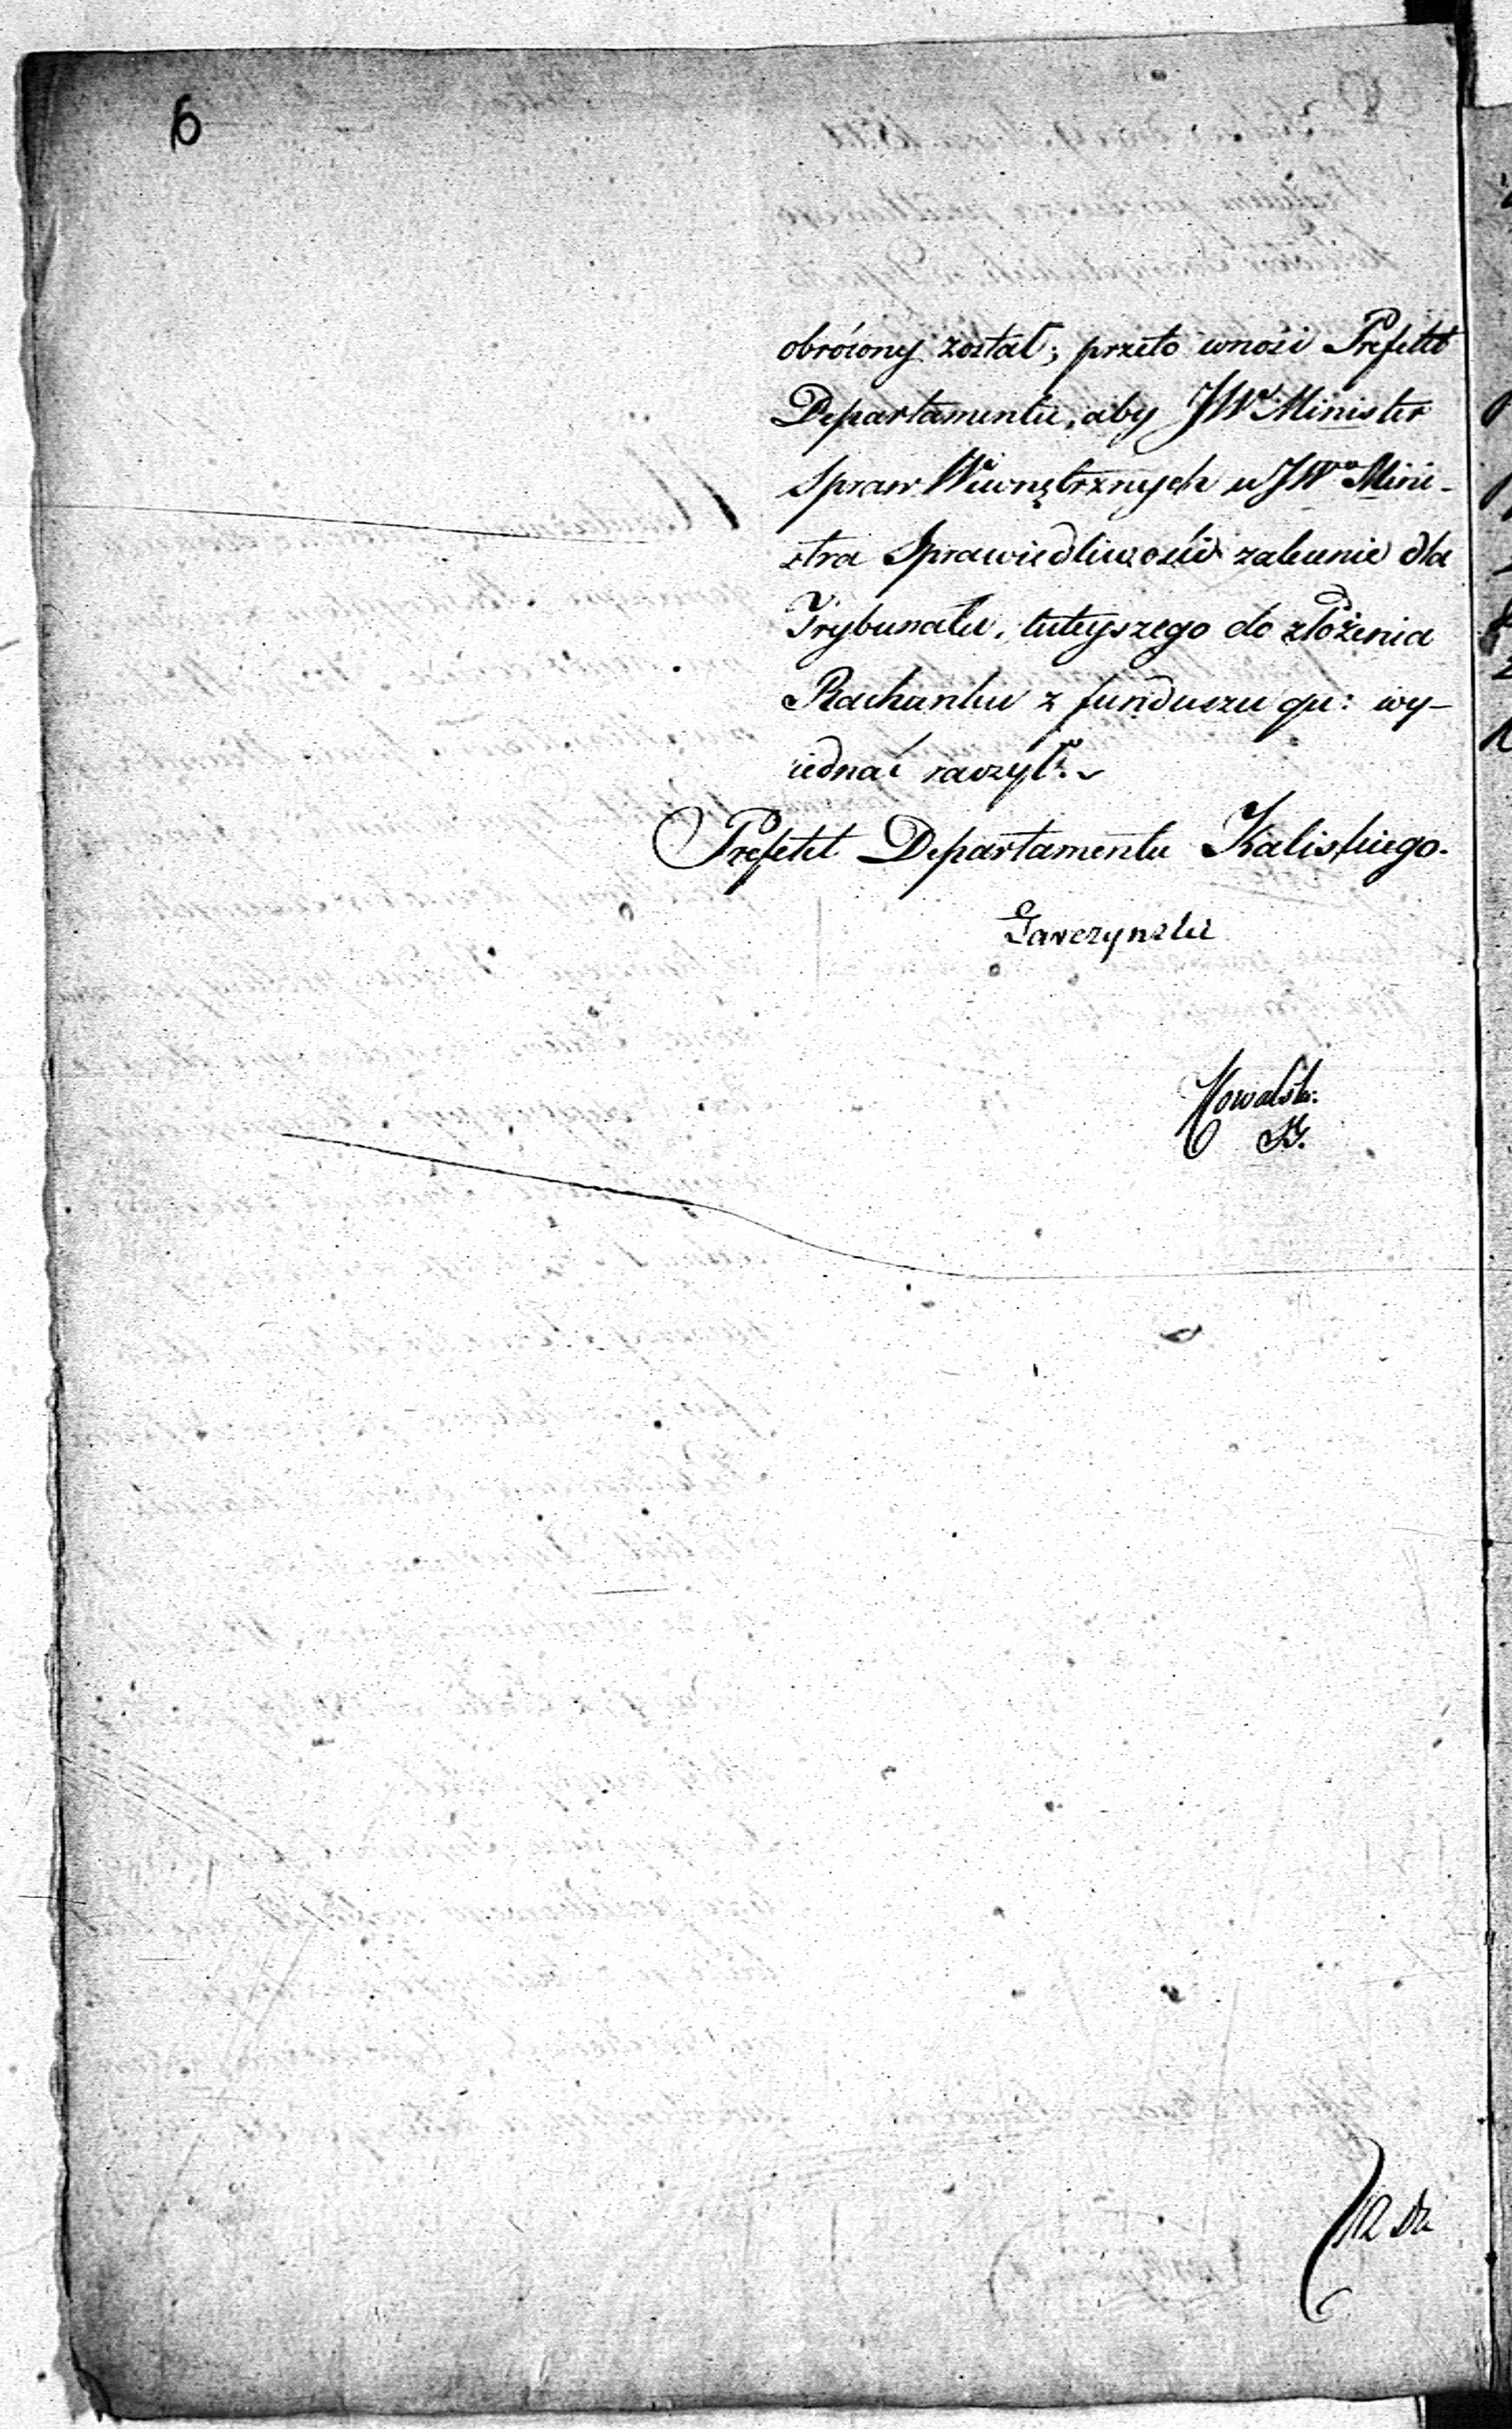 6
obrócony został; przeto wnosi Prefekt
Departamentu, aby JW. Minister
Spraw Wewnętrznych u JWo Mini-
stra Sprawiedliwości zalecenie dla
Trybunału, tuteyszego do złożenia
Rachunku z funduszu qu: wy-
iednać raczył.
Prefekt Departamentu Kaliskiego.
Garczynski
Kowalsk: